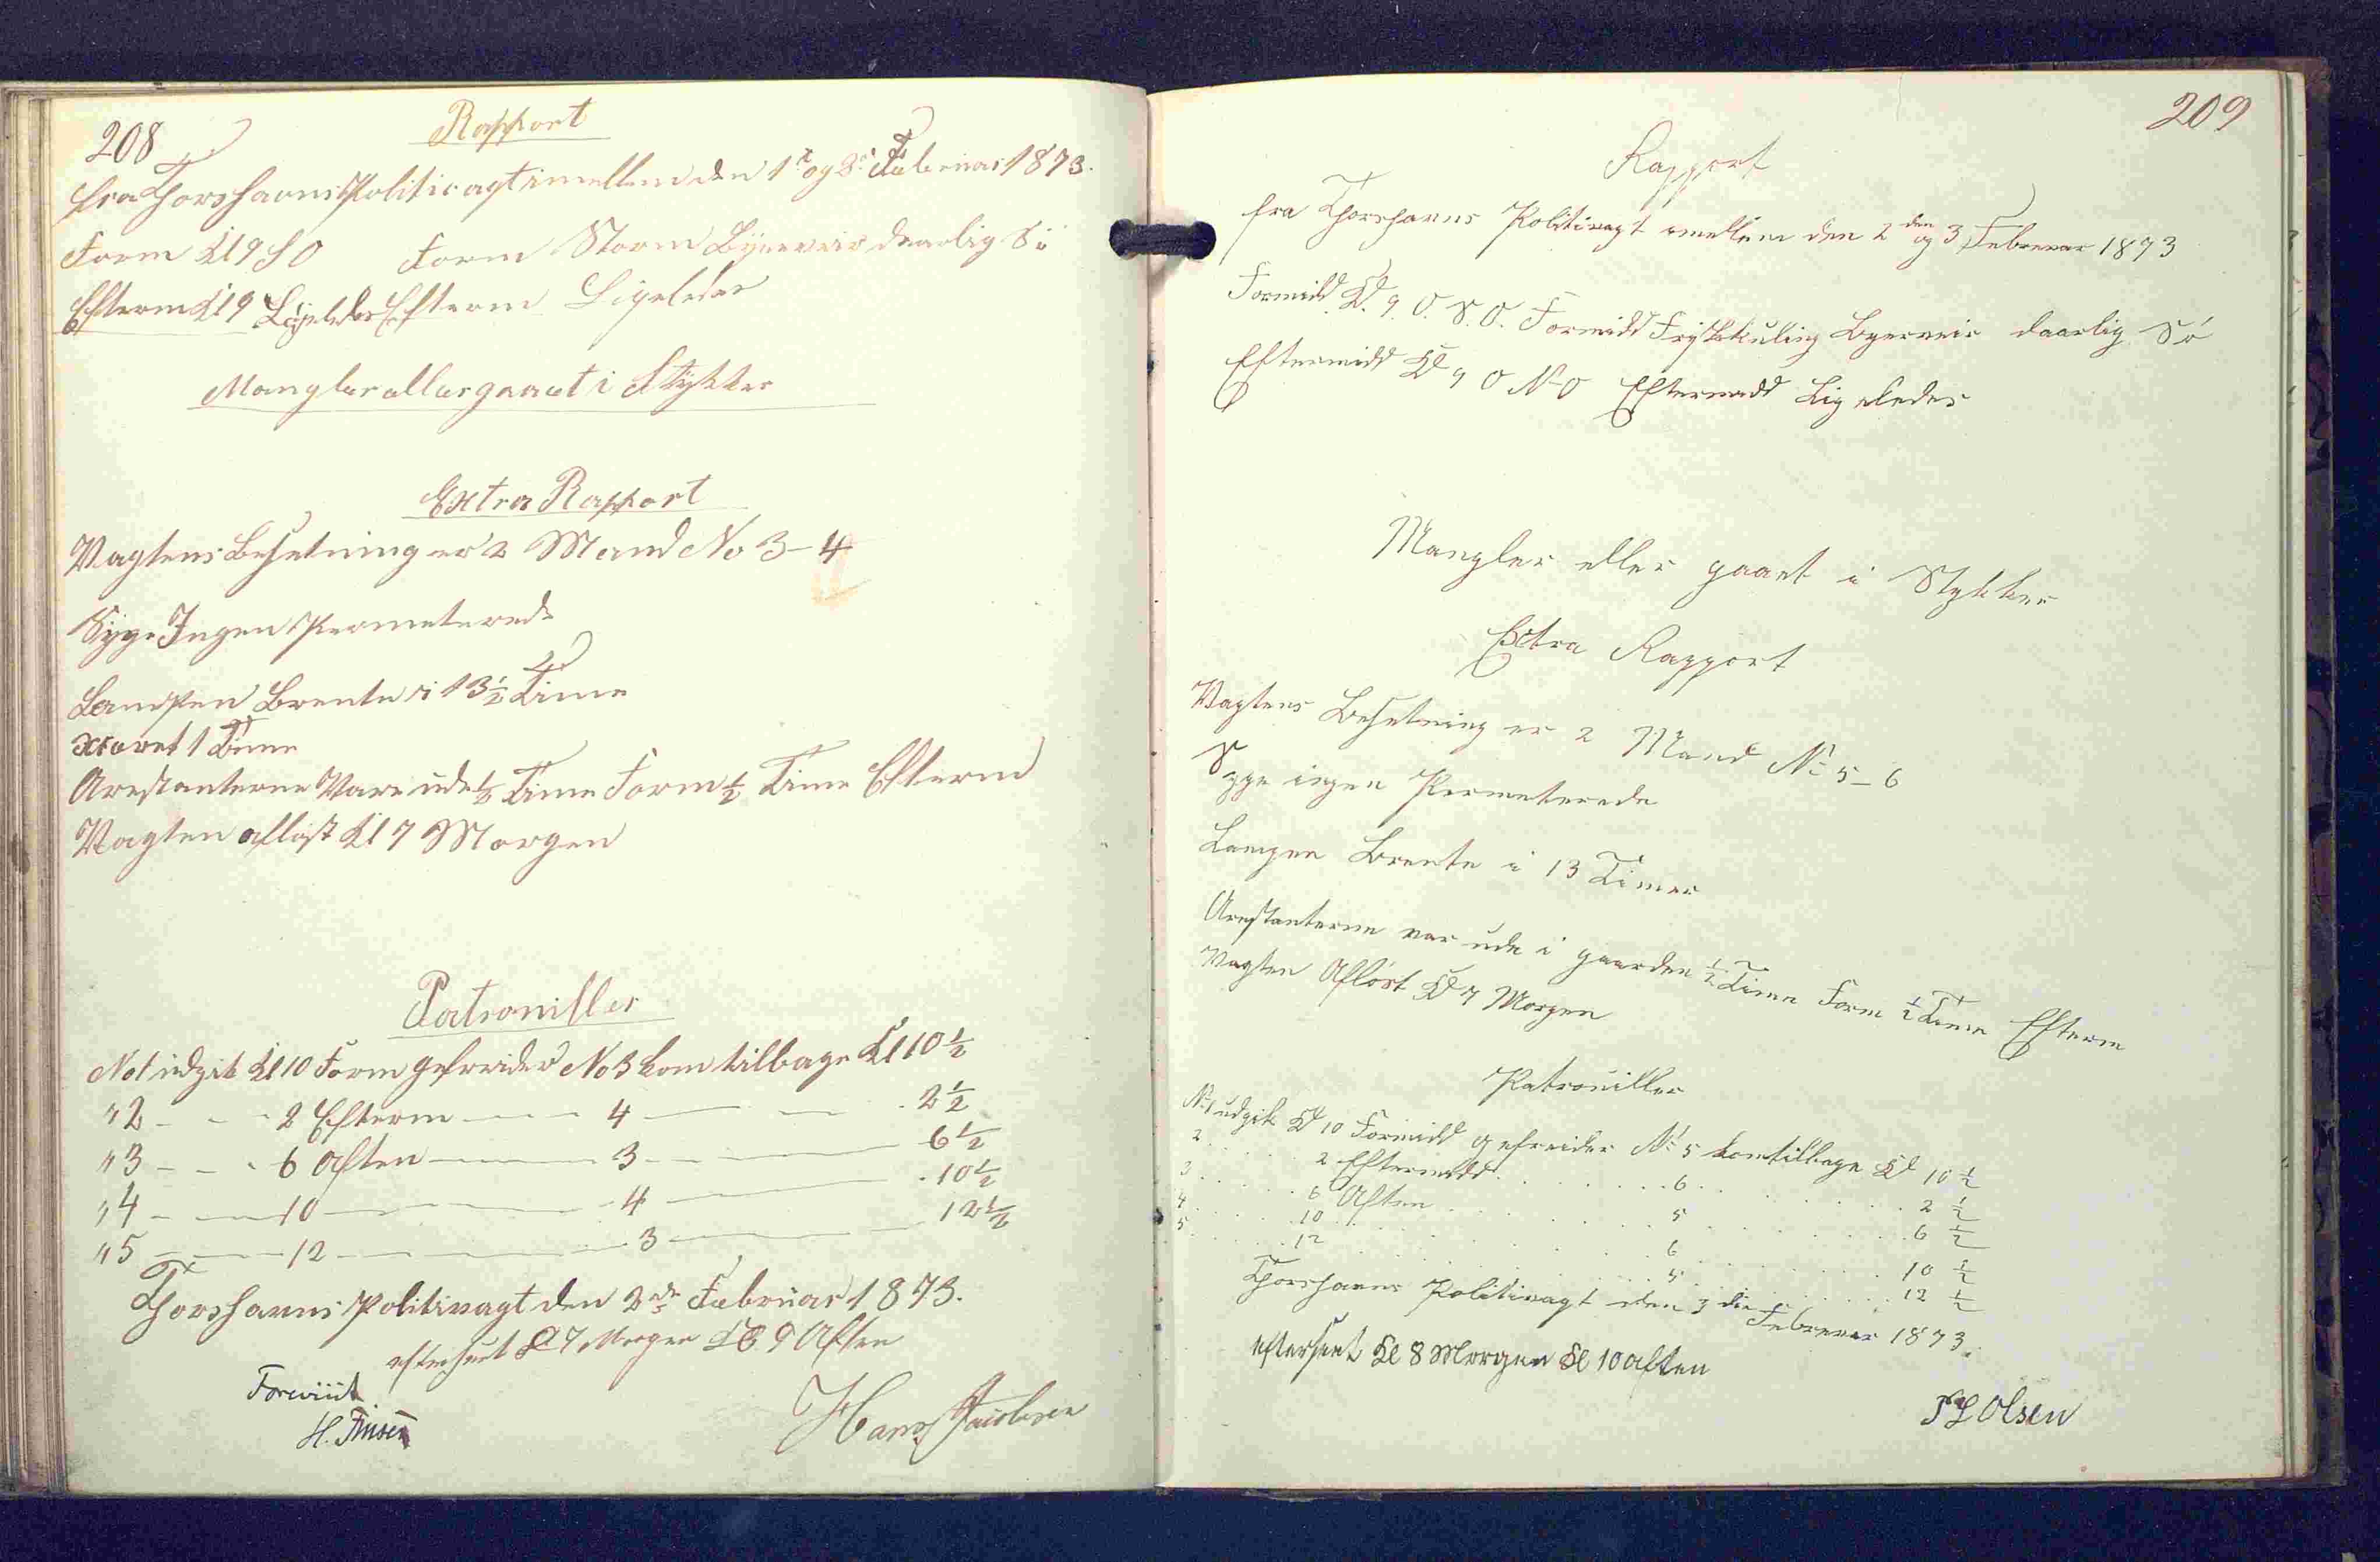 208
Rapport
fra Thorshavns Politivagt imellem den 1ste og 2den Februar 1873.
Form Kl 9 SO Form Storm Byeveir daarlig Sö
Efterm Kl 9 Ligeledes Efterm Ligeledes
Mangler eller gaaet i Stykker
Extra Rapport
Vagtens Besetning er 2 Mand No 3-4
Syge Ingen Permeterede
Lampen Brente i 13½ Time
1 Time
Arestanterne Vare ude ½ Time Form ½ Time Efterm
Vagten aflöst Kl 7 Morgen
Patrouiller
No 1 udgik Kl 10 Form gefreider No 3 kom tilbage Kl 10 ½
" 2 - - - 2 Efterm - - 4 - - - 2 ½
" 3 - - - 6 Aften - - 3 - - 6 ½
" 4 - - 10 - - 4 - - 10 ½
" 5 - - 12 - - 3 - - 12 ½
Thorshavns Politivagt den 2den Februar 1873.
efterseet Kl 7 Morgen Kl 9 Aften
Foreviist
H. Finsen
Hans Jacobsen
209
Rapport
fra Thorshavns Politivagt imellem den 2 den og 3 Februar 1873
Formidd Kl. 9 O. S. O. Formidd Friskkuling Byerveir daarlig Sö
Eftermidd Kl 9 O N O Eftermidd Ligeledes
Mangler eller gaaet i Stykker
Extra Rapport
Vagtens Besetning er 2 Mand No 5-6
Syge ingen Permeterede
Lampen Brente i 13 Timer
Arestanterne var ude i gaarden ½ Time Form ½ Time Efterm
Vagten Aflöst Kl 7 Morgen
Patrouiller
No 1 udgik Kl 10 Formidd gefreider No 5 kom tilbage Kl 10 ½
2 . . . . . 2 Eftermidd . . . . . 6 . . . . . 2 ½
3 . . . . . 6 Aften . . . . . 5 . . . . . 6 ½
4 . . . . . 10 . . . . . 6 . . . . . 10 ½
5 . . . . . 12 . . . . . 5 . . . . . 12 ½
Thorshavns Politivagt den 3 die Februar 1873.
efterseet Kl 8 Morgen Kl 10 Aften
Olsen